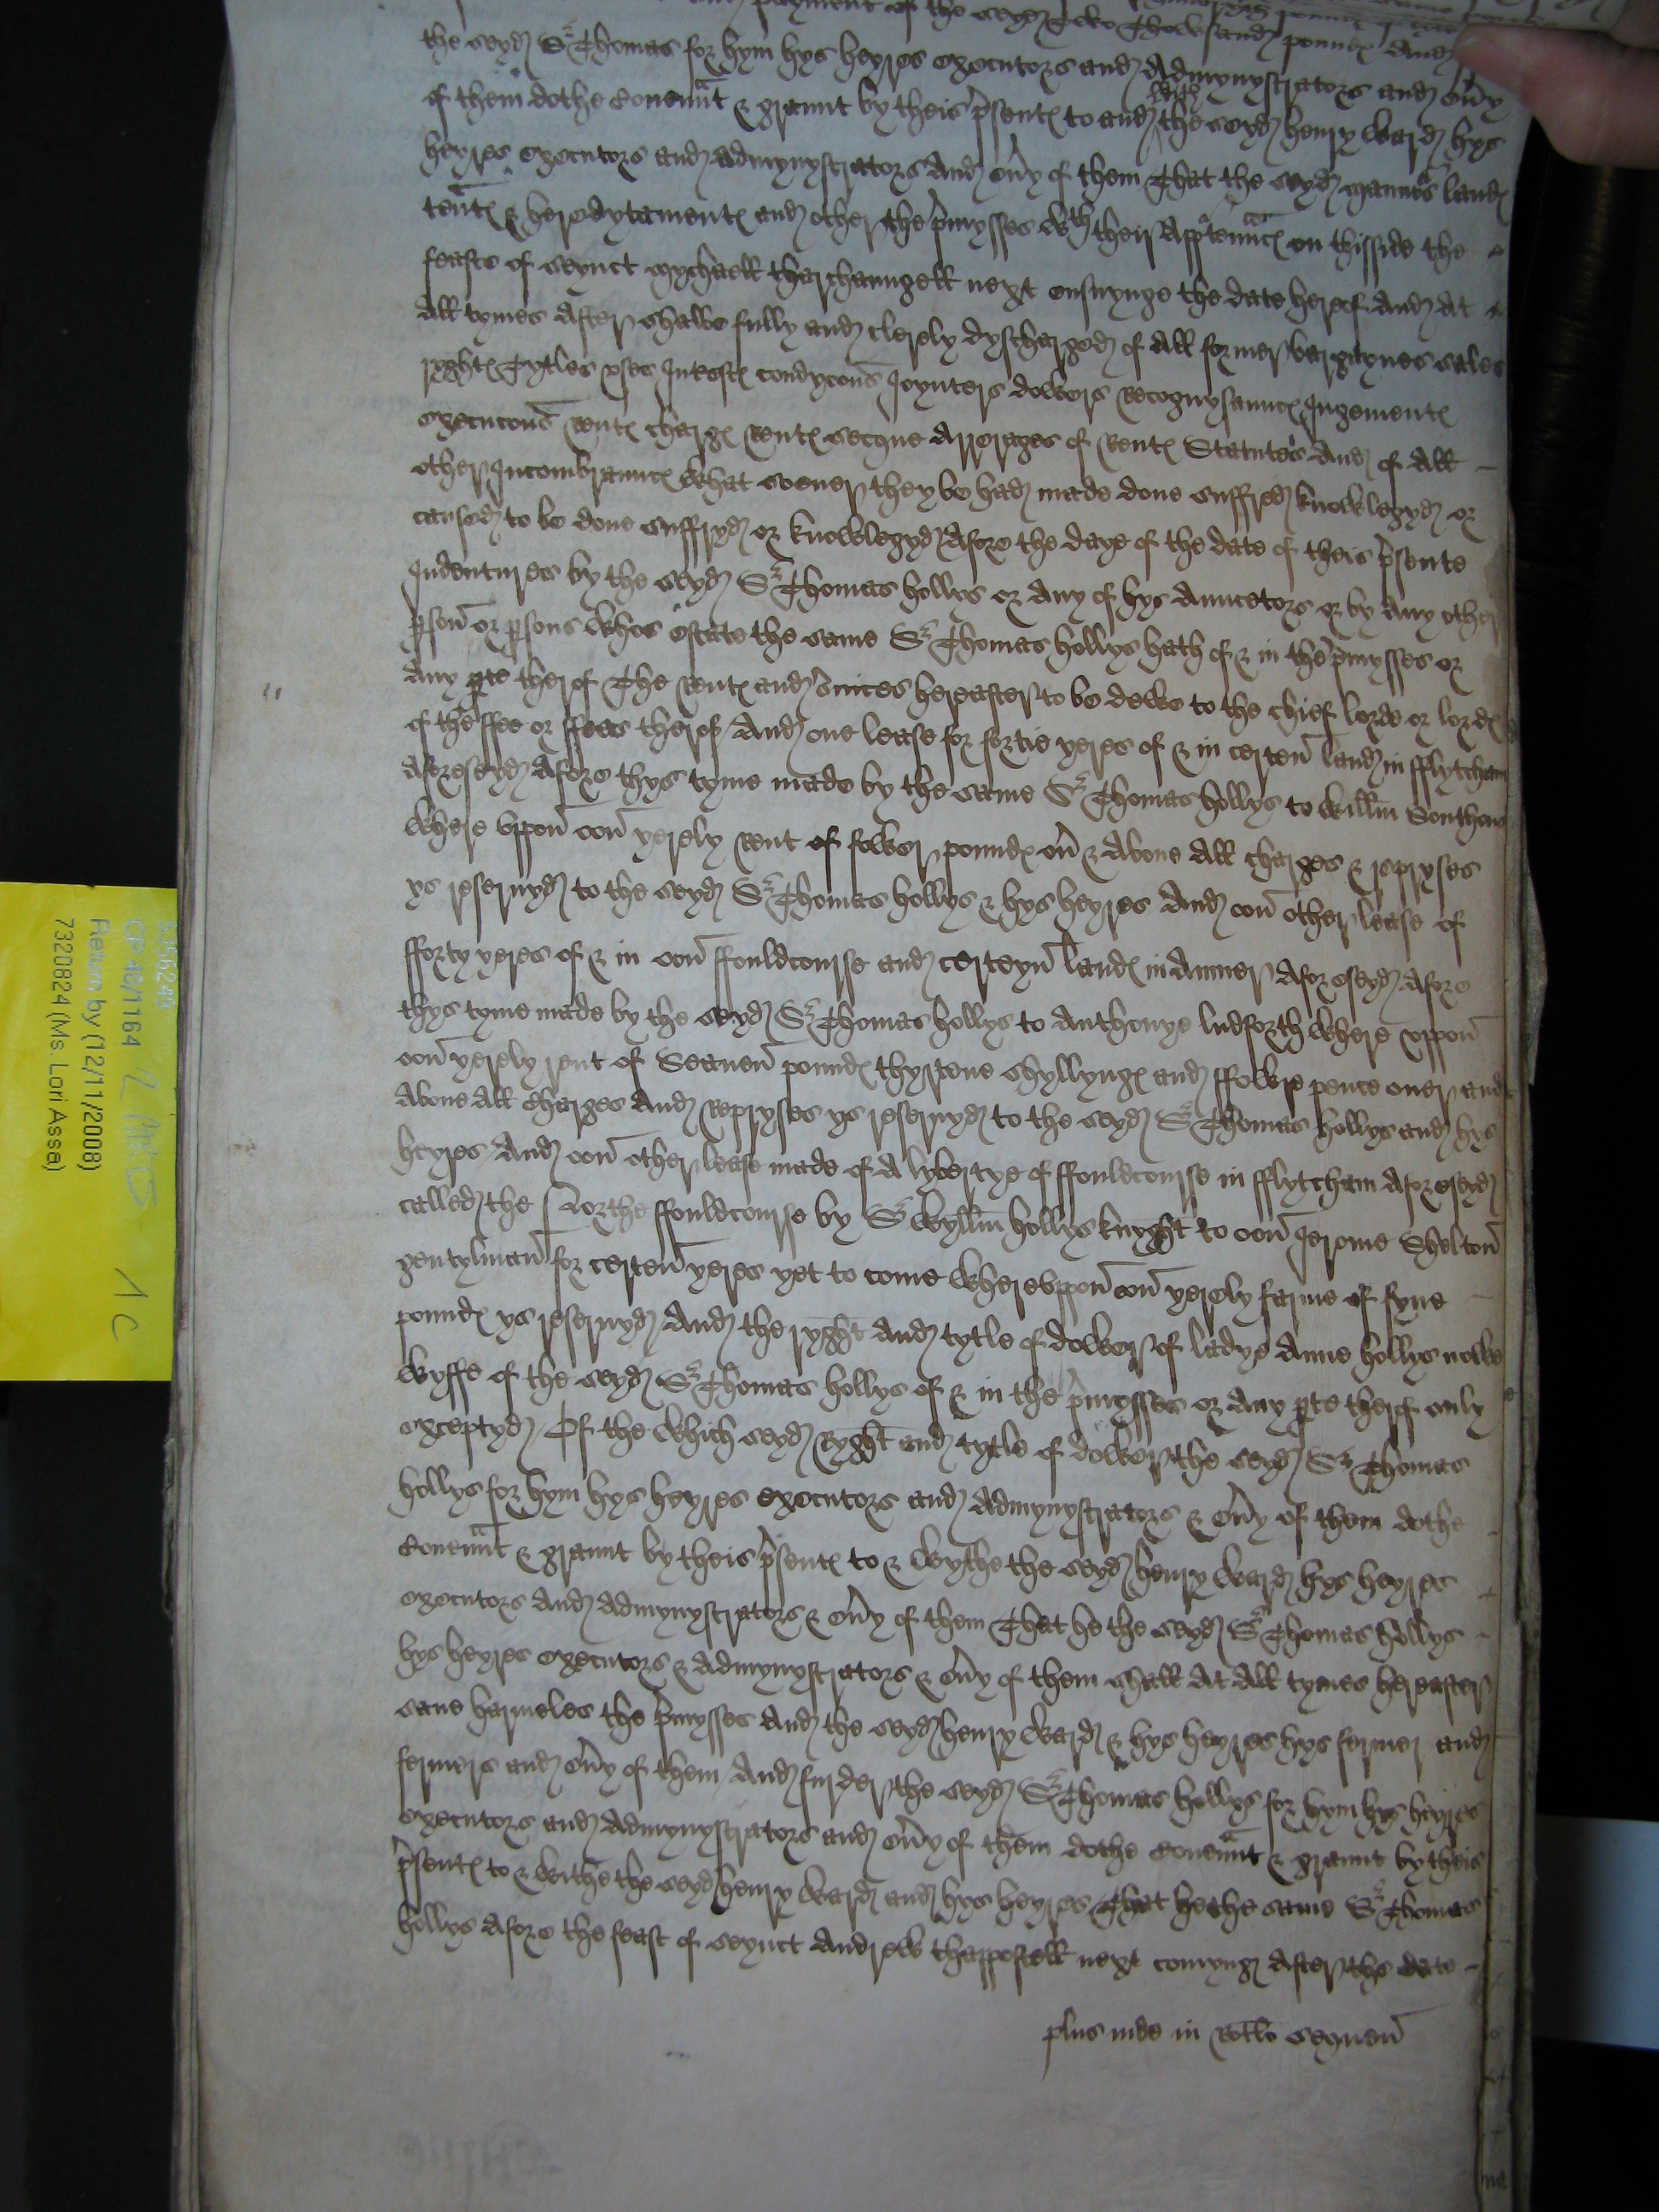 payment of the seyd Two Thowsand poundes And
the seyd Sr Thomas for hym hys heyres executors and Admynystrators and eũy
of them dothe Couenũt & graunt by theis p̃sentes to and with the seyd henry Ward hys
heyres executors and Admynystrators And eũy of them That the seyd manners landes
teñtes & heredytamentes and other the p̃mysses wth their Apptenñces on thisside the
feaste of seynct mychaell tharchaungell next ensuynge the date hereof And At
All tymes After shalbe fully and clerely dyscharged of All former bargaynes sales
ryghtes Tytles vses Intrestes condycons̃ Joynters dowers recognysaunces Jugementes
execucons̃ rentes charges rentes secque Arrerages of rentes Statutes And of All
other Incombraunces what soeuer they be had made done suffred knowlegyd or
caused to be done suffryd or knowlegyd Afore the daye of the date of theis p̃sente
Indentures by the seyd Sr Thomas hollys or Any of hys Auncetors or by Any other
p̱son or p̱sons whos estate the same Sr Thomas hollys hath of & in the p̃mysses or
Any p̱te therof The rentes and s̃uices hereafter to be dewe to the chief lorde or lordes
of the ffee or ffees therof And one lease for fortie yeres of & in certen land in fflytcham
Aforeseyd Afore thys tyme made by the same Sr Thomas hollys to Willm̃ Southous
where vppon oon yerely rent of fower poundes oũ & Aboue All charges & repryses
ys reseruyd to the seyd Sr Thomas hollys & hys heyres And oon other lease of
fforty yeres of & in oon ffouldcourse and certeyn landes in Anmer Aforeseyd Afore
thys tyme made by the seyd Sr Thomas hollys to Anthonye ludforth where vppon
oon yerely rent of Seauen poundes thyrtene shyllynges and ffowre pence ouer and
Aboue All Charges And repryses ys reseruyd to the seyd Sr Thomas hollys and hys
heyres And oon other lease made of A lybertye of ffouldcourse in fflytcham Aforeseyd
called the Northe ffouldcourse by Sr Wyllm̃ hollys knyght to oon Jerome Shelton
gentylman for certen yeres yet to come wherevppon oon yerely farme of fyue
poundes ys reseruyd And the ryght And tytle of dower of ladye Anne hollys nowe
wyffe of the seyd Sr Thomas hollys of & in the p̃mysses or Any p̱te therof only
exceptyd Of the which seyd ryght and tytle of dower the seyd Sr Thomas
hollys for hym hys heyres executors and Admynystrators & eũy of them dothe
Couenũt & graunt by theis p̃sentes to & wythe the seyd henry Ward hys heyres
executors And Admynystrators & eũy of them That he the seyd Sr Thomas hollys
hys heyres executors & Admynystrators & eũy of them shall At All tymes hereafter
saue harmeles the p̃mysses And the seyd henry Ward & hys heyres hys fermer and
fermers and eũy of them And furder the seyd Sr Thomas hollys for hym hys heyres
executors and Admynystrators and eũy of them dothe Couenũt & graunt by theis
p̃sentes to & withe the seyd henry Ward and hys heyres That he the same Sr Thomas
hollys Afore the feast of seynct Andrew thappostell next comyng After the date
plus inde in Rotlo sequen
CP 40/1164
Return by (12/1/2008)
7320824 (Ms. Lori Assa)
1 C